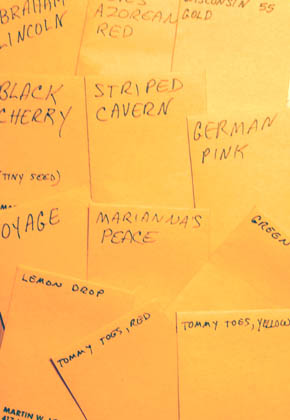 BRAHAM
LINCOLN
AZOREAN
RED
WISCONSIN 55
GOLD
BLACK
CHERRY
(TINY SEED)
STRIPED
CAVERN
GERMAN
PINK
OYAGE
MARIANNA'S
PEACE
GREEN
LEMON DROP
TOMMY TOES, RED
TOMMY TOES, YELLOW
MARTIN W.